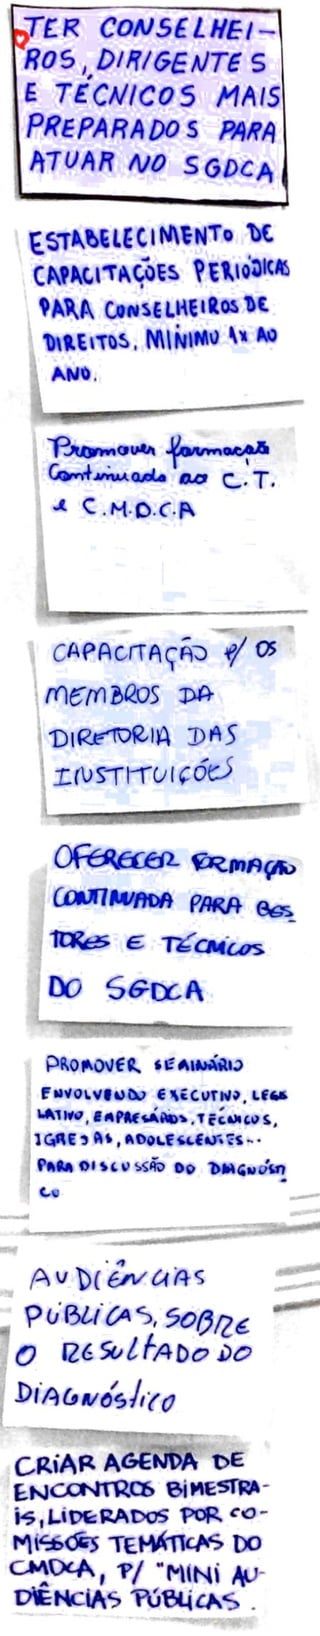 TER CONSELHEI-
ROS, DIRIGENTES
E TÉCNICOS MAIS
PREPARADOS PARA
ATUAR NO SGDCA
ESTABELECIMENTO DE
CAPACITAÇÕES PERIÓDICAS
PARA CONSELHEIROS DE
DIREITOS. MÍNIMO 1X AO
ANO.
Promover formação
Continuada ao C.T.
e C.M.D.C.A
CAPACITAÇÃO P/ OS
MEMBROS DA
DIRETORIA DAS
INSTITUIÇÕES
OFERECER FORMAÇÃO
CONTINUADA PARA GES
TORES E TÉCNICOS
DO SGDCA
PROMOVER SEMINÁRIO
ENVOLVENDO EXECUTIVO, LEGIS
LATIVO, EMPRESÁRIOS, TÉCNICOS,
IGREJAS, ADOLESCENTES...
PARA DISCUSSÃO DO DIAGNÓSTI
CO
AUDIÊNCIAS
PÚBLICAS, SOBRE
O RESULTADO DO
DIAGNÓSTICO
CRIAR AGENDA DE
ENCONTROS BIMESTRA-
IS, LIDERADOS POR CO-
MISSÕES TEMÁTICAS DO
CMDCA, P/ "MINI AU-
DIÊNCIAS PÚBLICAS.